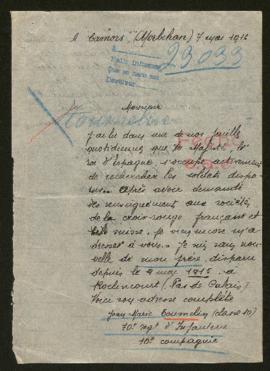 à Camors (Morbihan) 7 mai 1916
23033
Monsieur
J'ai lu dans une de nos feuilles
quotidiennes que Sa Majesté le
roi d'Espagne, s'occupe activement
de rechercher les soldats dispa-
rus. Après avoir demandé
des renseignements aux sociétés
de la croix-rouge française et
suisse. Je viens encore m'a-
dresser à vous. Je suis sans nou-
velle de mon frère disparu
depuis le 9 mai 1915 à
Roclincourt (Pas de Calais)
Voici son adresse complète
Jean Marie
70e regt d'Infanterie
10e compagnie